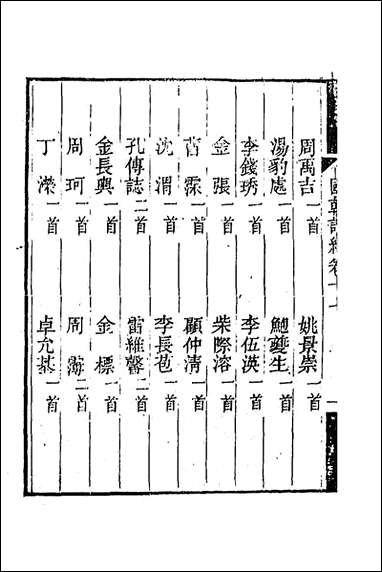 國朝詩綱卷十七
周禹吉一首 姚景崇一首
湯豹處一首 鮑夔生一首
李錢琇一首 李伍渶一首
金張一首 柴際溶一首
曹霂一首 顧仲清一首
沈渭一首 李長苞一首
孔傳誌二首 雷維馨一首
金長輿一首 金標一首
周珂一首 周二首
丁濚一首 卓允基一首